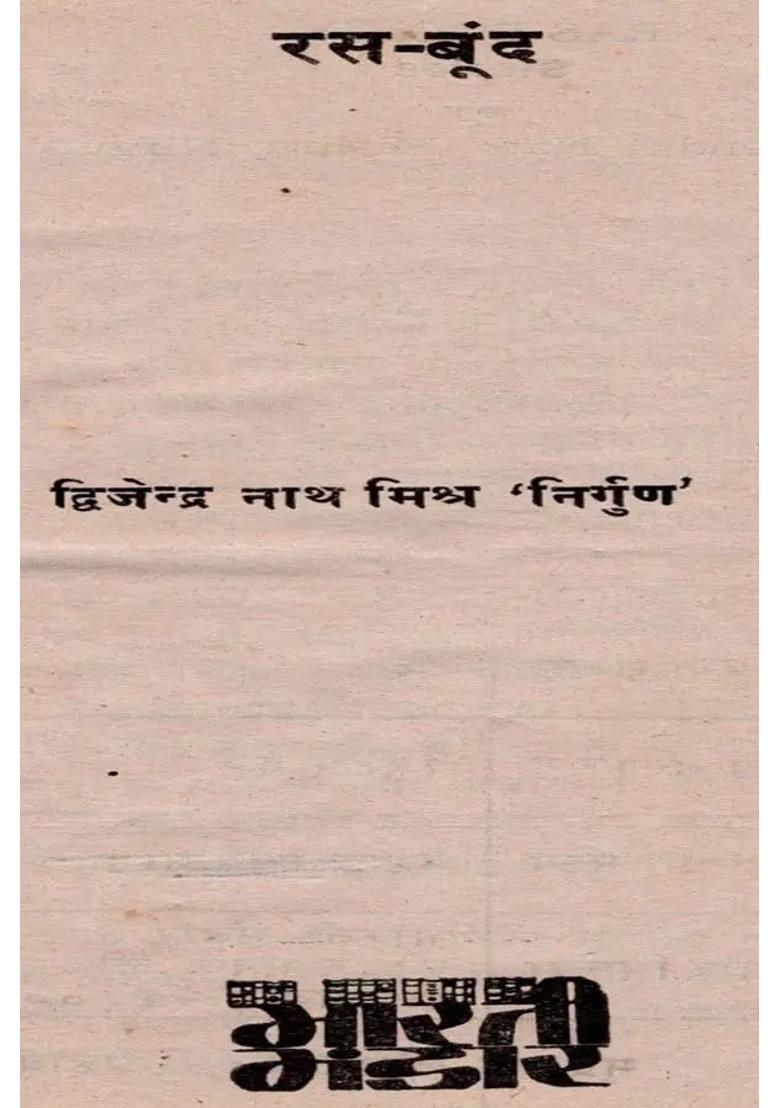 रस-बूंद
द्विजेन्द्र नाथ मिश्र ‘निर्गुण’
भारती
भंडार